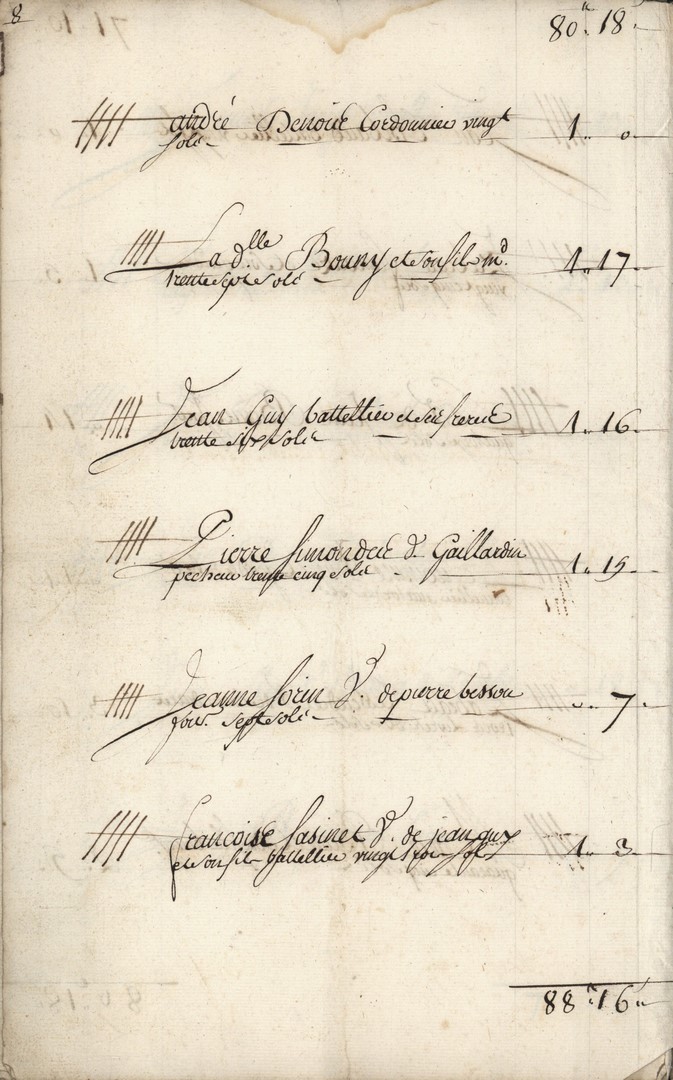 8
80 ₶ 18 s
andré Benoit Cordonnier vingt 1 .. 0
sols
La d.lle Bouny et son fils m.d 1 .. 17
trente sept sols
Jean Guy battellier et ses freres 1 .. 16
trente six sols
Pierre Simon dit Gaillardin 1 .. 15
pecheur trente cinq sols
Jeanne Sorin V. de pierre besson .. 7
sept sols
francoise Sasinet V. de jean guy 1 .. 3
et son fils battellier vingt trois sols
88 ₶ 16 s